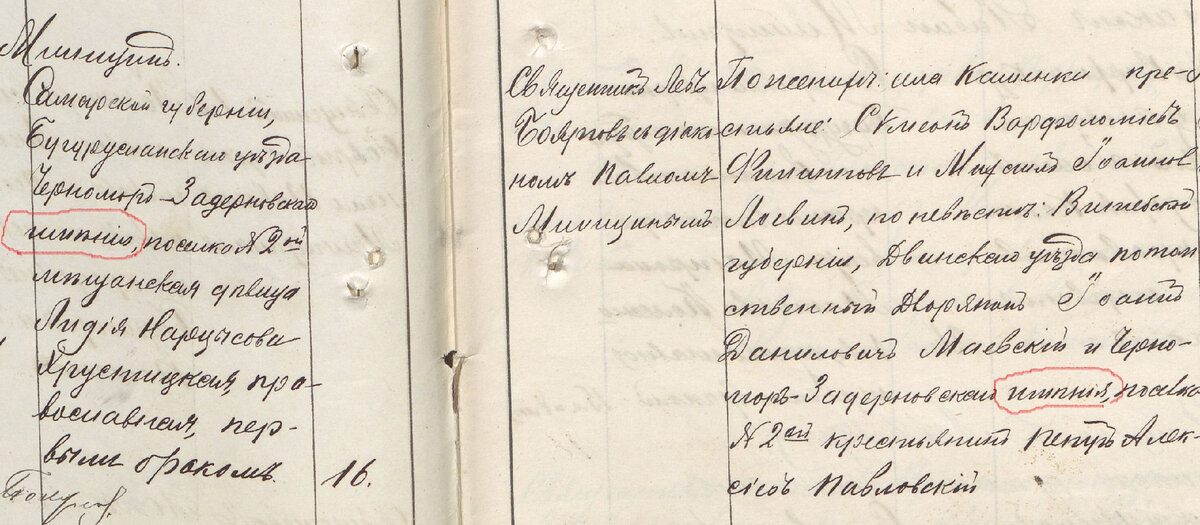 Самарской губернiи,
Бугурусланскаго уѣзда
Черноморъ-Задерновскаго
имѣнiя, поселка № 2ой
мѣщанская дѣвица
Лидiя Нарцысова
Хрустицкая, пра-
вославная, пер-
вымъ бракомъ.
16.
Священникъ Левъ
Бояровъ съ дiако-
номъ Павломъ
Мишинымъ
По женихѣ: села Каменки кре-
стьяне: Симеонъ Варфоломѣевъ
Филипповъ и Мирскiй Iоанновъ
Логвинъ, по невѣстѣ: Витебской
губернiи, Двинскаго уѣзда потом
ственный Дворянинъ Iоаннъ
Даниловичъ Маевскiй и Черно-
моръ-Задерновскаго имѣнiя, поселка
№ 2ой крестьянинъ Петръ Алек-
сѣевъ Павловскiй